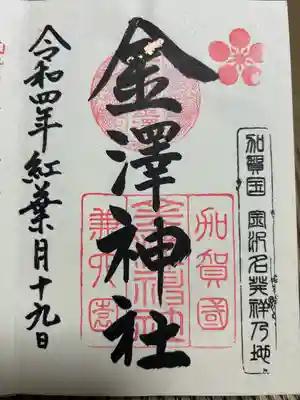 加賀国 金沢名発祥乃地
金澤神社
加賀國
金澤神社
兼六園
令和四年紅葉月十九日